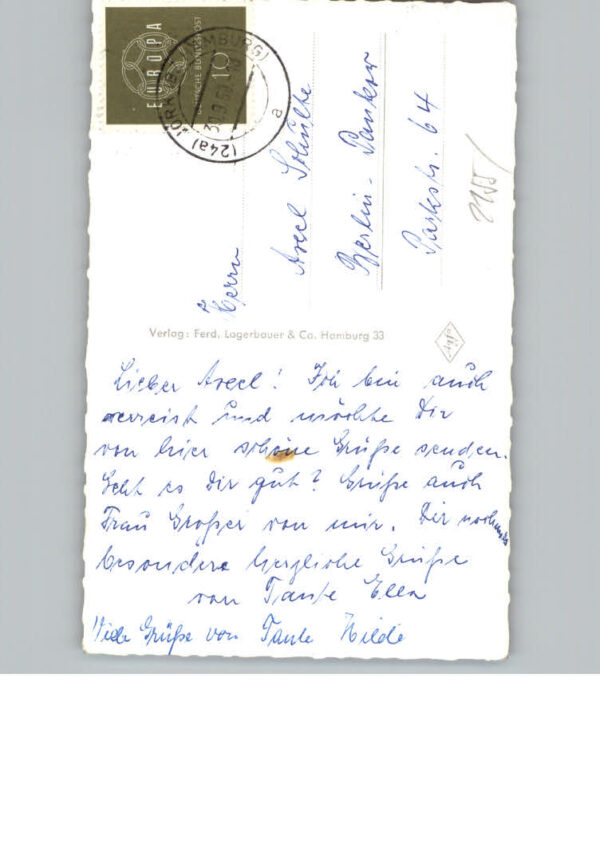 EUROPA
DEUTSCHE BUNDESPOST
10
(24a) JORK (BZ. HAMBURG)
a
Herrn
Axel Schulke
Berlin-Pankow
Parkstr. 64
2155/
Verlag: Ferd. Lagerbauer & Co. Hamburg 33
Agfa
Lieber Axel! Ich bin auch
verreist und möchte Dir
von hier schöne Grüße senden.
Geht es Dir gut? Grüße auch
Frau Großer von mir. Dir nochmals
besonders herzliche Grüße
von Tante Ella
Viele Grüße von Tante Hilde